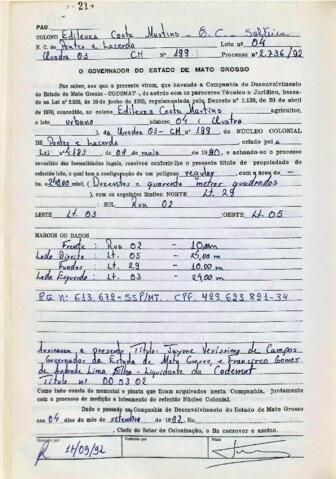 21
PAG
COLONO Edileuza Costa Martins - E. C. Solteira
N. C. de Pontes e Lacerda Lote nº 04
Quadra 03 CH nº 199 Processo nº 2.736/92
O GOVERNADOR DO ESTADO DE MATO GROSSO
Faz saber, aos que o presente virem, que havendo a Companhia de Desenvolvimento
do Estado de Mato Grosso - CODEMAT, de acordo com os pareceres Técnico e Jurídico, basea-
de 1978, concedido, ao colono Edileuza Costa Martins agricultor,
o lote Urbano número 04 (Quatro
), da Quadra 03 - CH nº 199 do NÚCLEO COLONIAL
de Pontes e Lacerda criado pela
Lei nº de de maio de 1980, e achando-se o processo
revestido das formalidades legais, resolveu conferir-lhe o presente título de propriedade do
referido lote, o qual tem a configuração de um polígono regular, com a área de
240,00 m² (Duzentos e quarenta metros quadrados
), com os seguintes limites: NORTE Lt. 29
SUL Rua 02
LESTE Lt. 03 OESTE Lt. 05
MARCOS OU DADOS
Frente: Rua 02 - 10,00m
Lado Direito: Lt. 05 - 24,00 m
Fundos: Lt. 29 - 10,00 m
Lado Esquerdo: Lt. 03 - 24,00
R.G. nº: 613.679-SSP/MT. CPF. 499.623.821-34
Assinaram o presente Título: Jayme Veríssimo de Campos
Governador do Estado de Mato Grosso, e Francisco Gomes
de Andrade Lima Filho - Liquidante da Codemat
Título nº 005302
Tudo como consta do memorial e planta que ficam arquivados nesta Companhia, juntamente
com o processo de medição e loteamento do referido Núcleo Colonial.
Dado e passado na Companhia de Desenvolvimento do Estado de Mato Grosso
aos 04 dias do mês de setembro de 1992 Eu,
, Chefe do Setor de Colonização, o fiz escrever e assino.
14/09/92